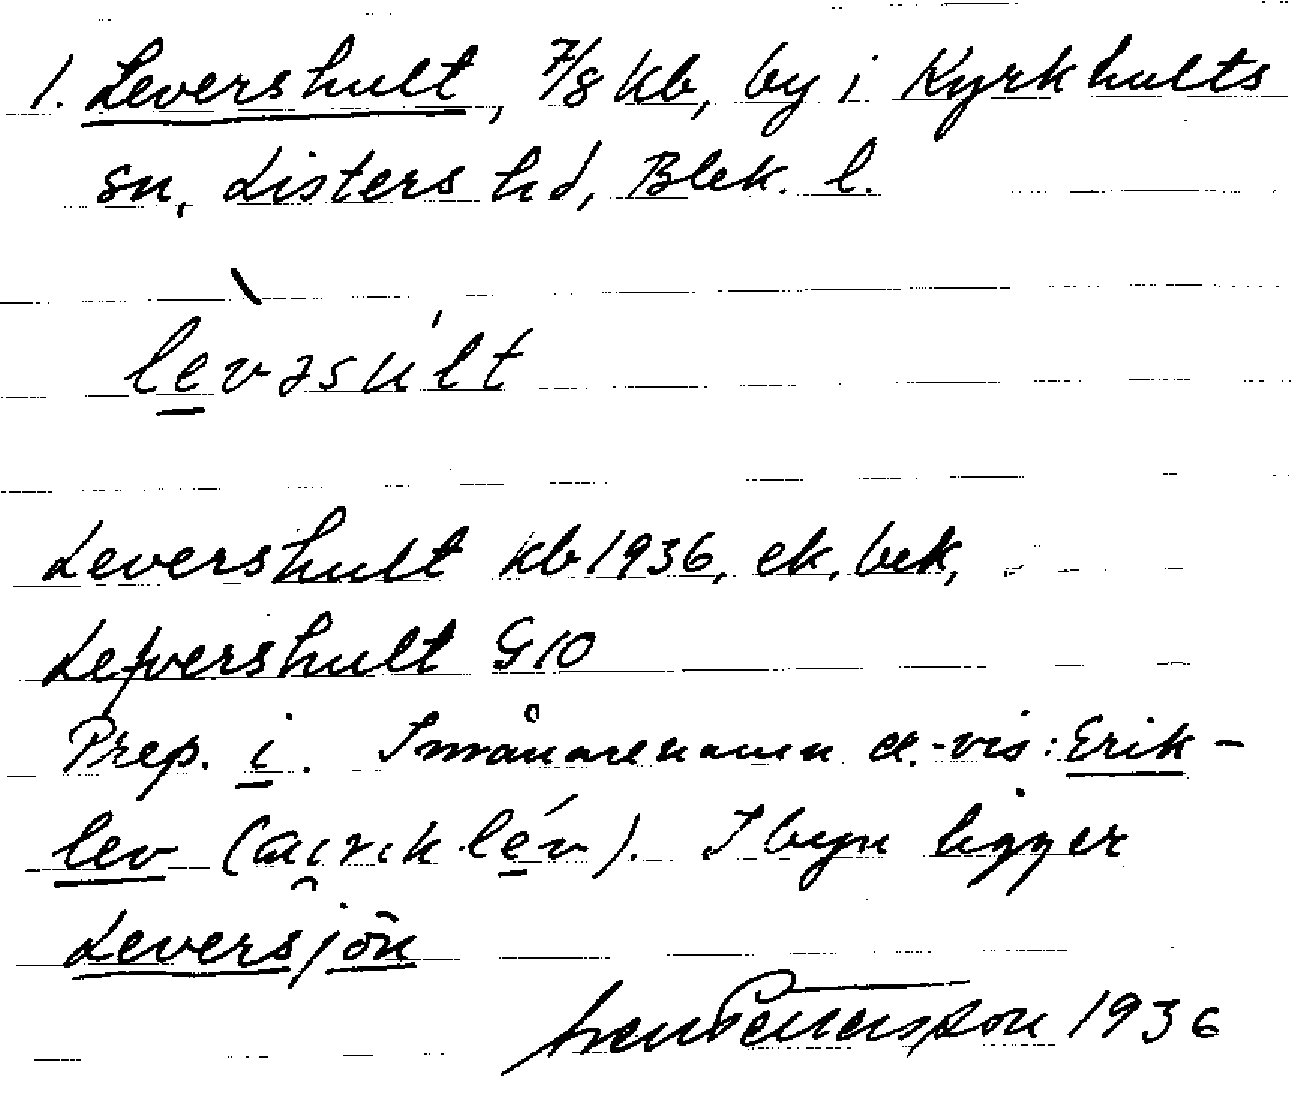 1. Levershult, 7/8 kb, by i Kyrkhults
sn, Listers hd, Blek. l.
lèvəsúlt
Levershult kb 1936, ek, bek,
Lefvershult G10
Prep. i. Invånarenamn ex.-vis: Erik-
lev (airik lév). I byn ligger
Leversjön
Pettersson 1936